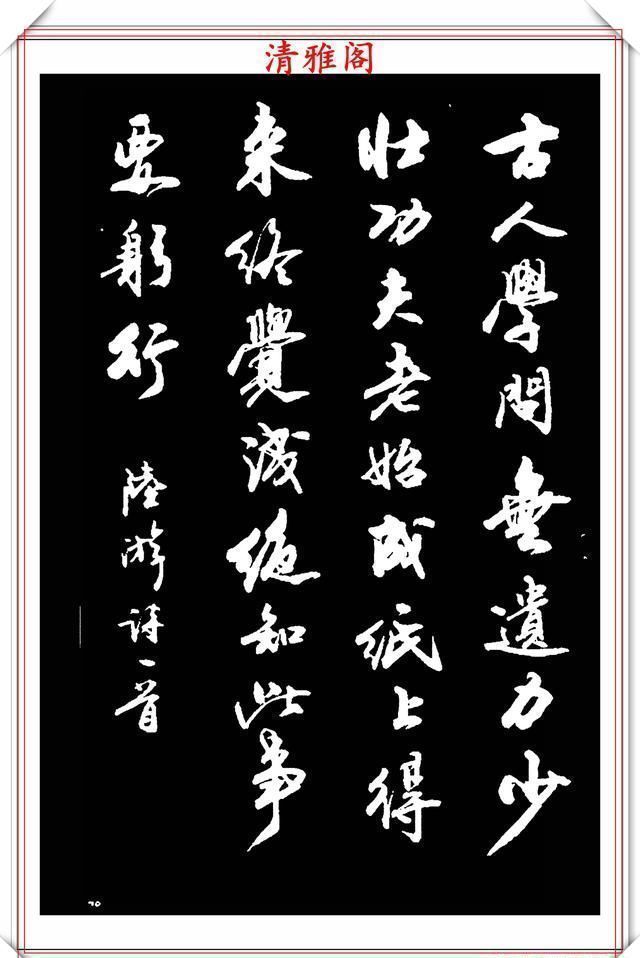 清雅阁
古人學問無遺力少
壯功夫老始成紙上得
来终覺淺絶知此事
要躬行
陸游詩一首
70